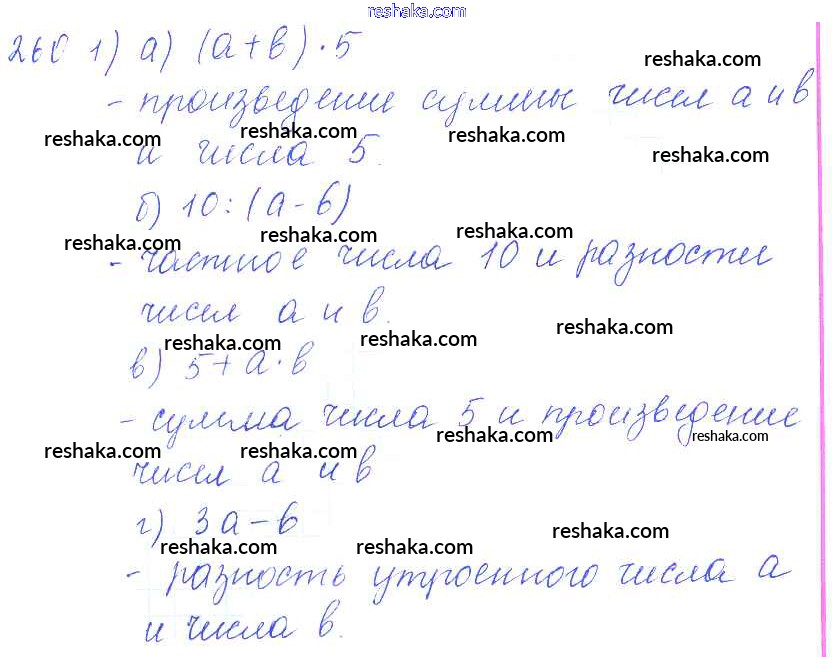 reshaka.com
260 1) а) (а+в)·5
reshaka.com
- произведение суммы чисел а и в
reshaka.com reshaka.com reshaka.com
и числа 5.
reshaka.com
б) 10:(а-б)
reshaka.com reshaka.com reshaka.com
- частное числа 10 и разности
чисел а и в.
reshaka.com reshaka.com reshaka.com
в) 5+а·в
- сумма числа 5 и произведение
reshaka.com reshaka.com
reshaka.com reshaka.com
чисел а и в
г) 3а-в
reshaka.com
reshaka.com reshaka.com
- разность утроенного числа а
и числа в.